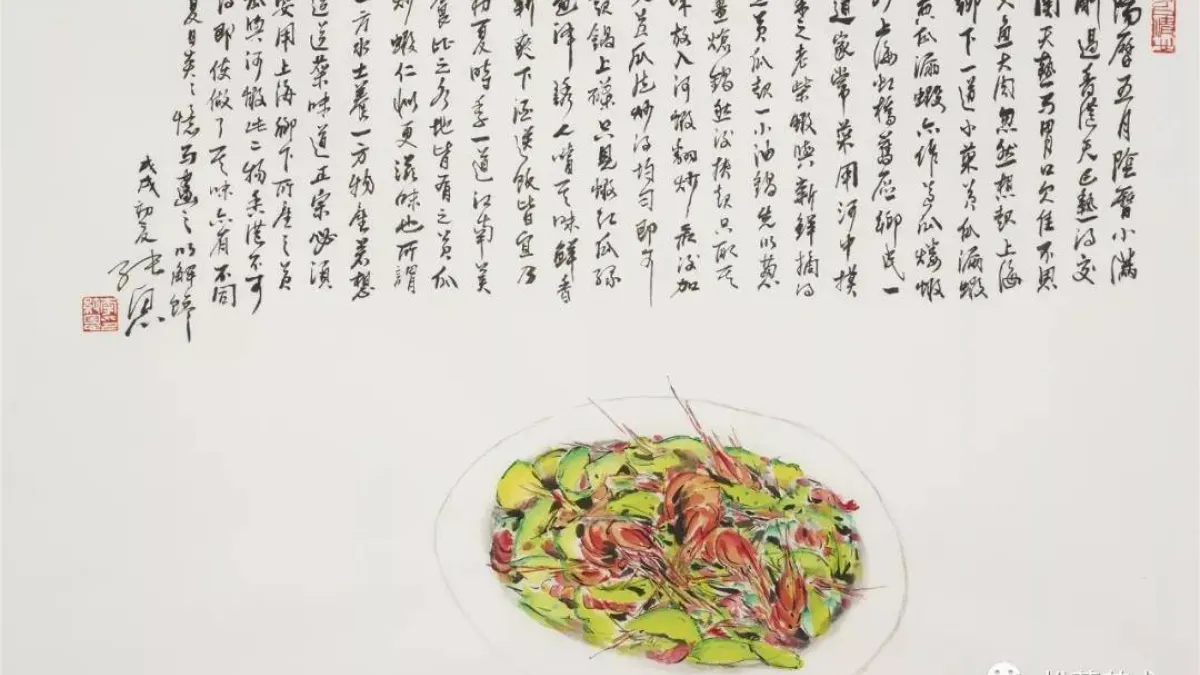 陽曆五月陰曆小滿
剛過香港天已熱得交
關天熱而胃口欠佳不思
大魚大肉忽然想起上海
鄉下一道小菜黃瓜漏蝦
黃瓜漏蝦亦作黃瓜熝蝦
乃上海虹橋舊屬鄉民一
道家常菜用河中摸
來之老柴蝦與新鮮摘得
之黃瓜起一小油鍋先以蔥
薑熗鍋然後只取其
味放入河蝦翻炒最後加
黃瓜炒得均勻即可
起鍋上碟只見蝦紅瓜綠
色澤誘人嚐其味鮮香
新爽下酒送飯皆宜乃
初夏時季一道江南美
食比之各地皆有之黃瓜
炒蝦仁似更滋味也所謂
一方水土養一方物產若想
這道菜味道正宗必須
要用上海鄉下所產之黃
瓜與河蝦此二物香港不可
得即使做了其味亦有不同
夏日炎々憶而畫之以解饞
戊戌初夏